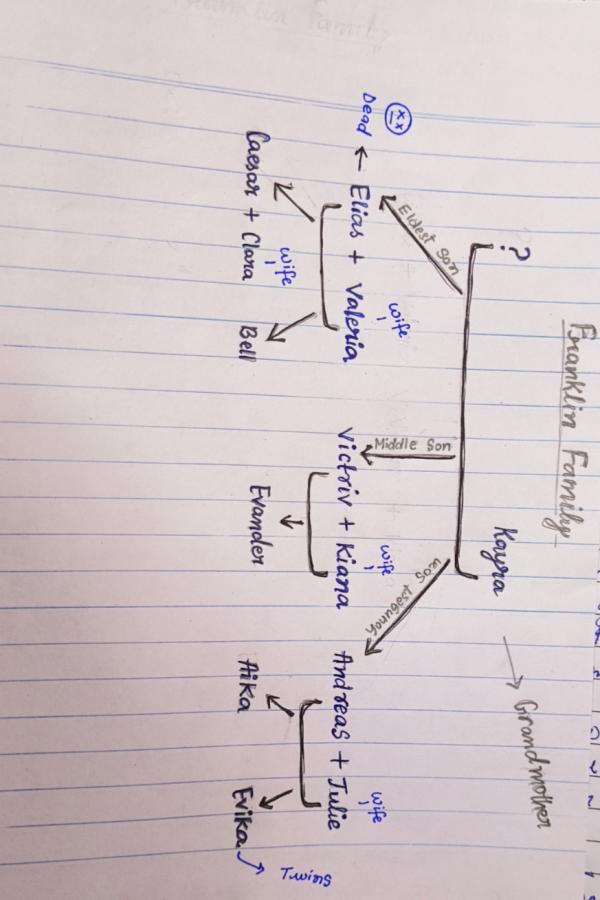 Franklin Family
? Kayra → Grandmother
Eldest Son Middle Son Youngest Son
wife wife wife
Dead ← Elias + Valeria Victriv + Kiana Andreas + Julie
wife
Caesar + Clara Bell Evander Aika Evika
Twins